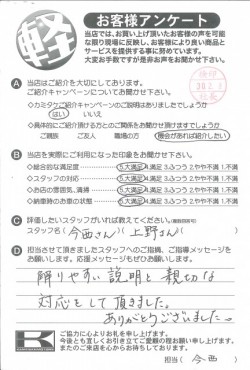 軽
お客様アンケート
当店では、お買い上げ頂いたお客様の声を可能
な限り現場に反映し、お客様により良い商品と
サービスを提供する事に努めています。
大変お手数ですが是非お声をお聞かせ下さい。
A 当店はご紹介を大切にしております。
ご紹介キャンペーンについてお聞かせ下さい。
◇カミタケご紹介キャンペーンのご説明はありましたでしょうか
はい いいえ
◇具体的にご紹介頂ける方とのご関係をお聞かせ頂けますでしょうか
ご親族 ご友人 職場の方 機会があれば紹介したい
B 当店を実際にご利用になった印象をお聞かせ下さい。
・総合的な満足度 5.大満足 4.満足 3.ふつう 2.やや不満 1.不満
・スタッフの対応 5.大満足 4.満足 3.ふつう 2.やや不満 1.不満
・お店の雰囲気、清掃 5.大満足 4.満足 3.ふつう 2.やや不満 1.不満
・納車時のお車の状態 5.大満足 4.満足 3.ふつう 2.やや不満 1.不満
C 評価したいスタッフがいれば教えてください。(複数回答可)
スタッフ名( 今西さん )( 上野さん )( )
D 担当させて頂きましたスタッフへのご指摘、ご指導メッセージを
お願いします。ご応援メッセージもお願いします。
解りやすい説明と親切な
対応をして頂きました。
ありがとうございました。
K
ご協力に心よりお礼を申し上げます。
今後とも宜しくお引き立てご愛顧の程お願い申し上げます。
またのご来店を心からお待ちしております。
担当( 今西 )